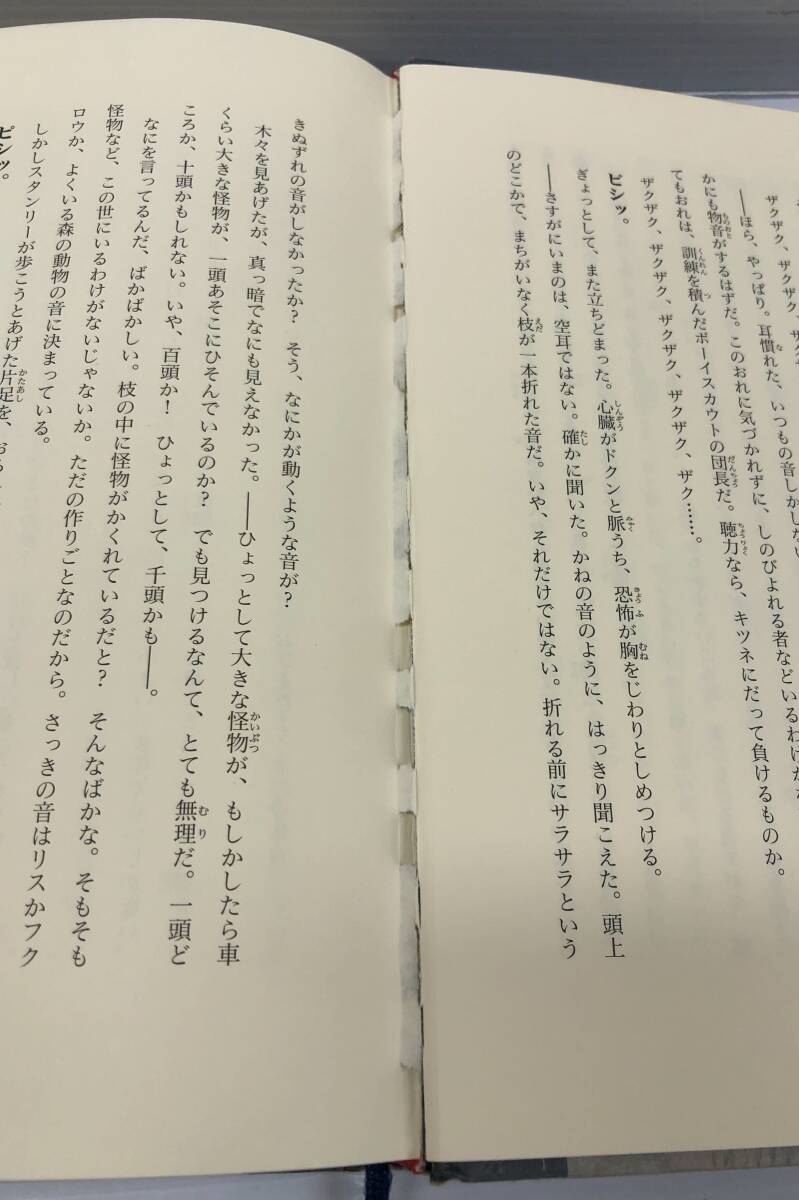 ザクザク、ザクザク、ザクザク
――ほら、やっぱり。耳慣れた、いつもの音しかしない
かにも物音がするはずだ。このおれに気づかれずに、しのびよれる者などいるわけが
てもおれは、訓練を積んだボーイスカウトの団長だ。聴力なら、キツネにだって負けるものか。
ザクザク、ザクザク、ザクザク、ザクザク、ザク……。
ピシッ。
ぎょっとして、また立ちどまった。心臓がドクンと脈うち、恐怖が胸をじわりとしめつける。
――さすがにいまのは、空耳ではない。確かに聞いた。かねの音のように、はっきり聞こえた。頭上
のどこかで、まちがいなく枝が一本折れた音だ。いや、それだけではない。折れる前にサラサラという
きぬずれの音がしなかったか？　そう、なにかが動くような音が？
木々を見あげたが、真っ暗でなにも見えなかった。――ひょっとして大きな怪物が、もしかしたら車
くらい大きな怪物が、一頭あそこにひそんでいるのか？　でも見つけるなんて、とても無理だ。一頭ど
ころか、十頭かもしれない。いや、百頭か！　ひょっとして、千頭かも――。
なにを言ってるんだ、ばかばかしい。枝の中に怪物がかくれているだと？　そんなばかな。そもそも
怪物など、この世にいるわけがないじゃないか。ただの作りごとなのだから。さっきの音はリスかフク
ロウか、よくいる森の動物の音に決まっている。
しかしスタンリーが歩こうとあげた片足を、おろ
ピシッ。